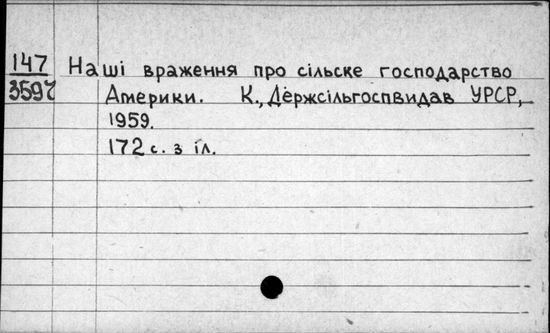 147 Наші враження про сільске господарство
3597 Америки. К., Держсільгоспвидав УРСР,
1959.
172 с. з іл.